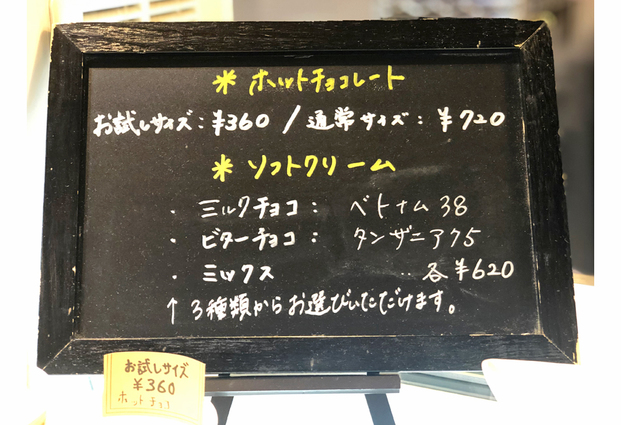 * ホットチョコレート
お試しサイズ：¥360 / 通常サイズ：¥720
* ソフトクリーム
・ミルクチョコ： ベトナム38
・ビターチョコ： タンザニア75
・ミックス ‥各¥620
↑3種類からお選びいただけます。
お試しサイズ
¥360
ホットチョコ